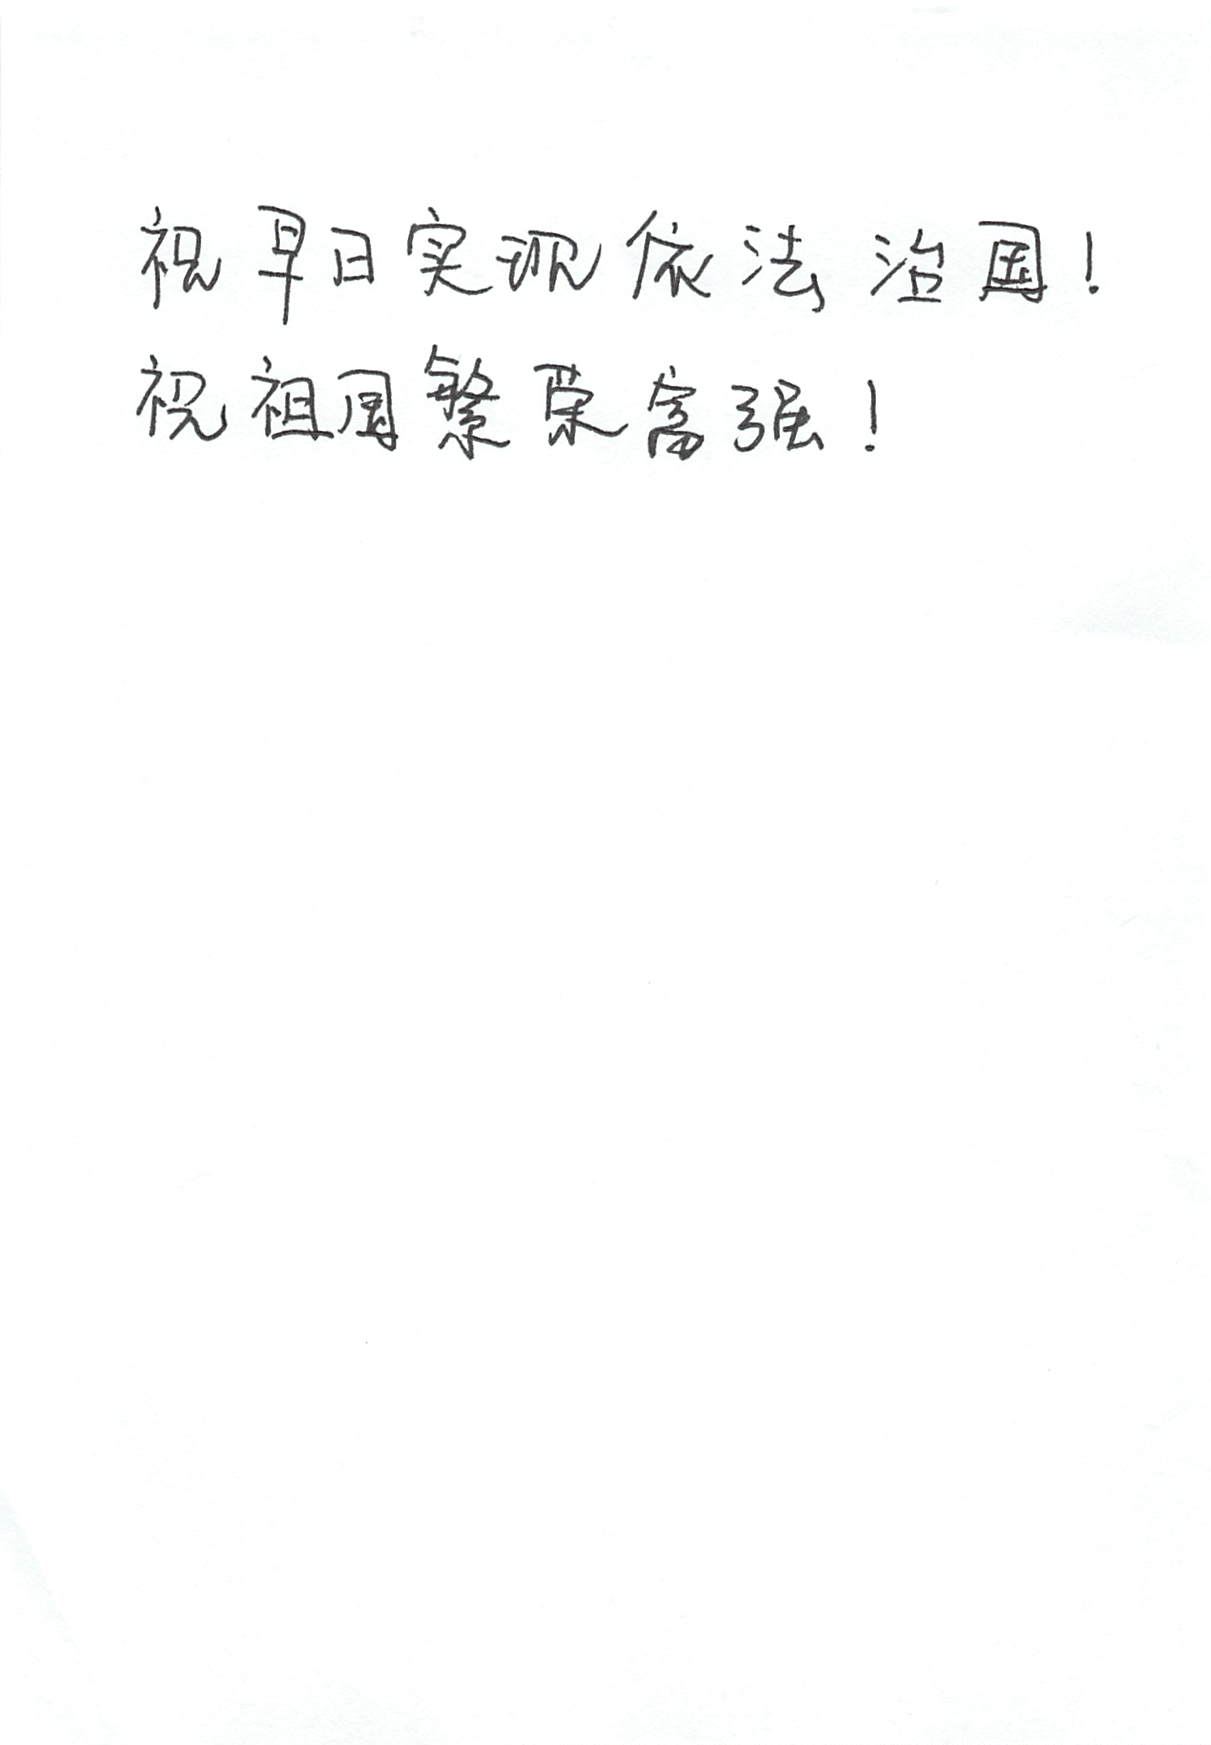 祝早日实现依法治国！
祝祖国繁荣富强！